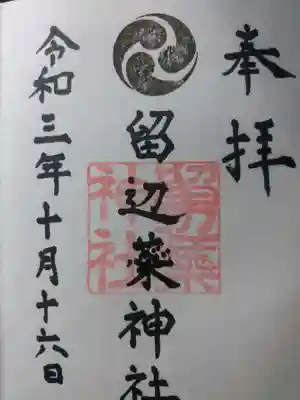 奉拝
留辺蘂神社
令和三年十月十六日